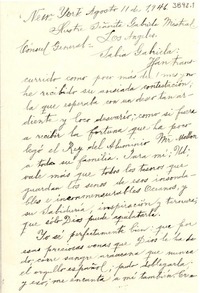 New York Agosto 11 de 1946
Ilustre Señorita Gabriela Mistral
Consul General - Los Angeles.
Sabia Gabriela: Han trans-
currido como poco más de 1 mes, no
he recibido su ansiada contestación,
la que esperaba con ardor
y loco desvarío; como si fuera
a recibir la fortuna que ha
el Rey del Aluminio Mr. Mellon
a toda su familia. Para mi, Ud.
vale más que todos los tesoros que
guardan los senos de esos insonda-
bles e inconmensurables Oceanos, y
su sabiduría, inspiración y ternura,
que sólo Dios puede
Yo sé perfectamente bien que por
esas preciosas venas que Dios le ha da-
do, corre sangre araucana que nunca
el orgullo español, pudo doblegarla
y eso, me encanta a mi también